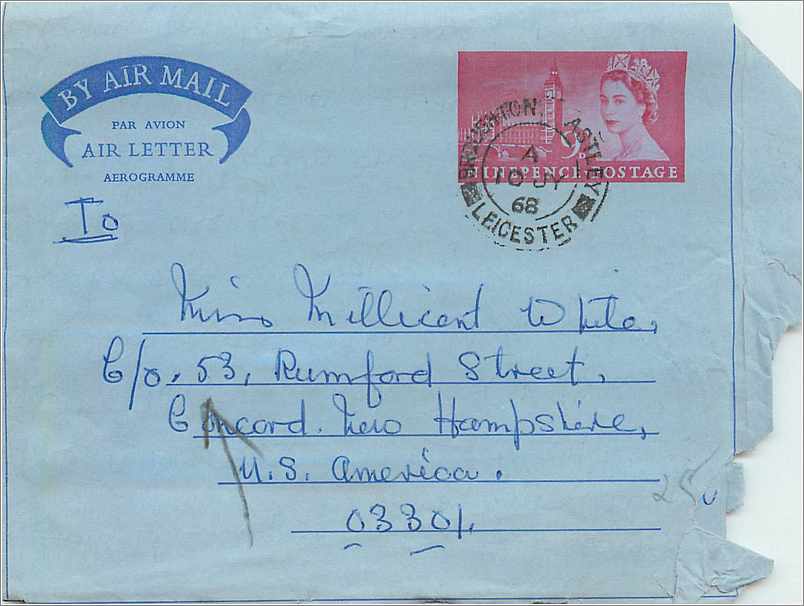 BY AIR MAIL
PAR AVION
AIR LETTER
AEROGRAMME
NINEPENCE POSTAGE
9D
BROUGHTON ASTLEY
A
10 JY
68
LEICESTER
To
Miss Millicent White,
C/o. 53, Rumford Street,
Concord. New Hampshire,
U.S. America.
03301.